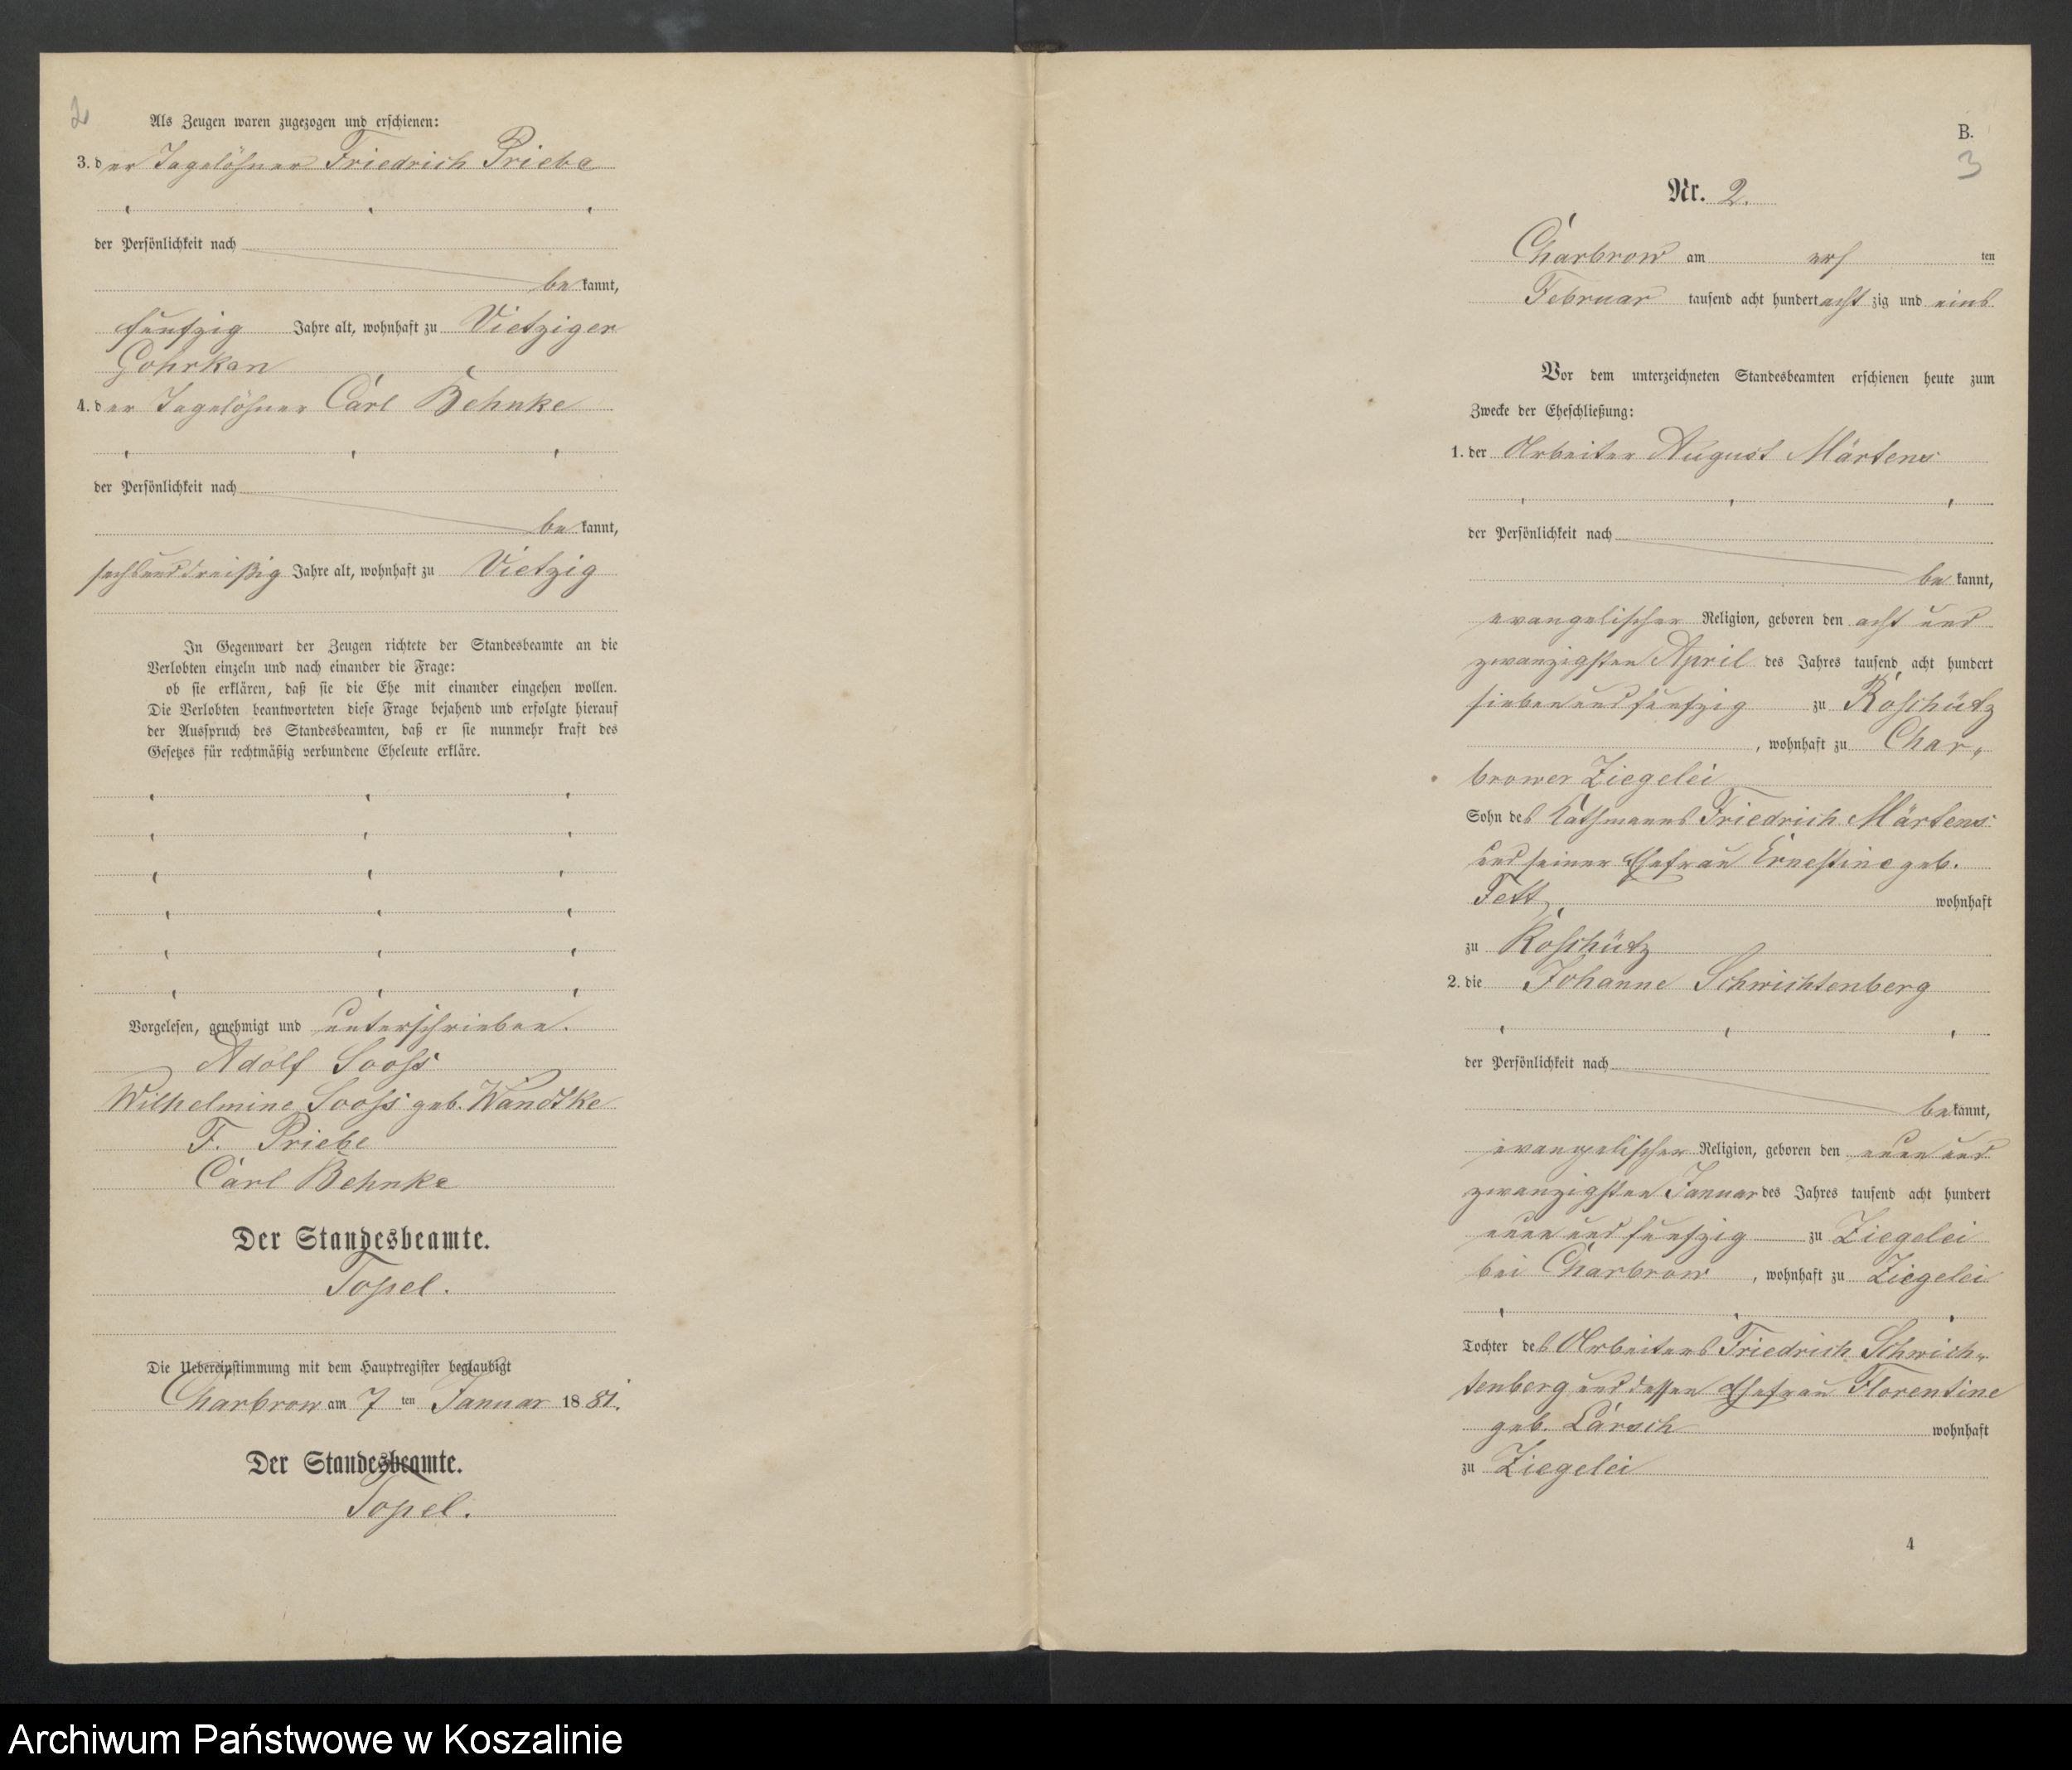 2
Als Zeugen waren zugezogen und erschienen:
3. der Tagelöhner Friedrich Priebe
der Persönlichkeit nach
bekannt,
funfzig Jahre alt, wohnhaft zu Vietziger
Gohrken
4. der Tagelöhner Carl Behnke
der Persönlichkeit nach
bekannt,
sechsunddreißig Jahre alt, wohnhaft zu Vietzig
In Gegenwart der Zeugen richtete der Standesbeamte an die
Verlobten einzeln und nach einander die Frage:
ob sie erklären, daß sie die Ehe mit einander eingehen wollen.
Die Verlobten beantworteten diese Frage bejahend und erfolgte hierauf
der Ausspruch des Standesbeamten, daß er sie nunmehr kraft des
Gesetzes für rechtmäßig verbundene Eheleute erkläre.
Vorgelesen, genehmigt und unterschrieben.
Adolf Sooss
Wilhelmine Sooss geb. Wandtke
F. Priebe
Carl Behnke
Der Standesbeamte.
Topel.
Die Uebereinstimmung mit dem Hauptregister beglaubigt
Charbrow am 7 ten Januar 1881.
Der Standesbeamte.
Topel.
B.
3
Nr. 2.
Charbrow am ersten
Februar tausend acht hundert achtzig und eins
Vor dem unterzeichneten Standesbeamten erschienen heute zum
Zwecke der Eheschließung:
1. der Arbeiter August Märtens
der Persönlichkeit nach
bekannt,
evangelischer Religion, geboren den acht und
zwanzigsten April des Jahres tausend acht hundert
siebenundfunfzig zu Roschütz
, wohnhaft zu Char-
brower Ziegelei
Sohn des Kathmanns Friedrich Märtens
und seiner Ehefrau Ernestine geb.
Fett, wohnhaft
zu Roschütz
2. die Johanne Schwichtenberg
der Persönlichkeit nach
bekannt,
evangelischer Religion, geboren den neun und
zwanzigsten Januar des Jahres tausend acht hundert
neun und funfzig zu Ziegelei
bei Charbrow, wohnhaft zu Ziegelei
Tochter des Arbeiters Friedrich Schwich-
tenberg und dessen Ehefrau Florentine
geb. Larsch wohnhaft
zu Ziegelei
4
Archiwum Państwowe w Koszalinie